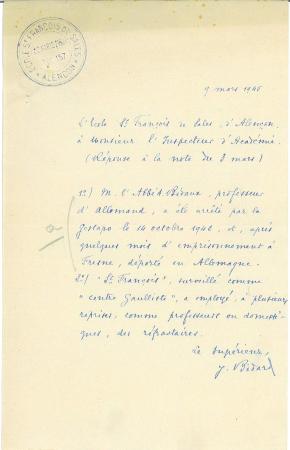 ECOLE ST FRANÇOIS DE SALES
ALENÇON
9 mars 1946
L'Ecole St François de Sales, d'Alençon,
à Monsieur l'Inspecteur d'Académie.
(Réponse à la note du 8 mars)
1º) M. l'Abbé A. Bidaux, professeur
d'Allemand, a été arrêté par la
Gestapo le 16 octobre 1942, et, après
quelques mois d'emprisonnement à
Fresne, déporté en Allemagne.
2º) "St François", surveillé comme
"centre Gaulliste", a employé, à plusieurs
reprises, comme professeurs ou domesti-
ques, des réfractaires.
Le Supérieur,